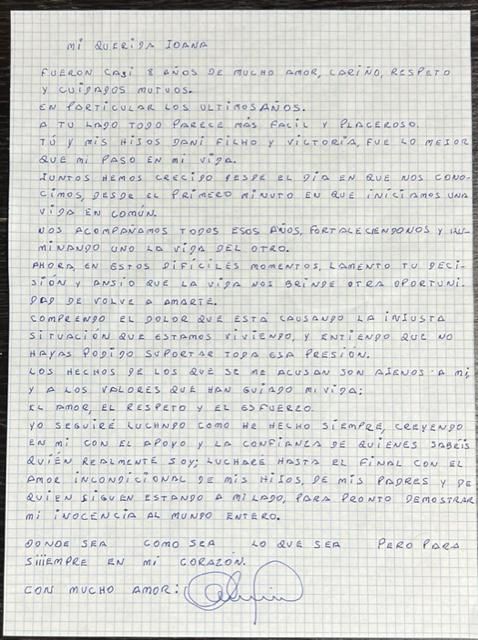 MI QUERIDA JOANA
FUERON CASI 8 AÑOS DE MUCHO AMOR, CARIÑO, RESPETO
Y CUIDADOS MUTUOS.
EN PARTICULAR LOS ULTIMOS AÑOS.
A TU LADO TODO PARECE MÁS FACIL Y PLACEROSO.
TÚ Y MIS HIJOS DANI FILHO Y VICTORIA, FUE LO MEJOR
QUE MI PASO EN MI VIDA.
JUNTOS HEMOS CRECIDO DESDE EL DÍA EN QUE NOS CONO-
CIMOS, DESDE EL PRIMERO MINUTO EN QUE INICIAMOS UNA
VIDA EN COMÚN.
NOS ACOMPAÑAMOS TODOS ESOS AÑOS, FORTALECIENDONOS Y ILU-
MINANDO UNO LA VIDA DEL OTRO.
AHORA, EN ESTOS DIFÍCILES MOMENTOS, LAMENTO TU DECI-
SIÓN Y ANSIO QUE LA VIDA NOS BRINDE OTRA OPORTUNI-
DAD DE VOLVE A AMARTE.
COMPRENDO EL DOLOR QUE ESTÁ CAUSANDO LA INJUSTA
SITUACIÓN QUE ESTAMOS VIVIENDO, Y ENTIENDO QUE NO
HAYAS PODIDO SUPORTAR TODA ESA PRESIÓN.
LOS HECHOS DE LOS QUE SE ME ACUSAN SON AJENOS A MI,
Y A LOS VALORES QUE HAN GUIADO MI VIDA:
EL AMOR, EL RESPETO Y EL ESFUERZO.
YO SEGUIRÉ LUCHANDO COMO HE HECHO SIEMPRE, CREYENDO
EN MI CON EL APOYO Y LA CONFIANZA DE QUIENES SABÉIS
QUIÉN REALMENTE SOY; LUCHARÉ HASTA EL FINAL CON EL
AMOR INCONDICIONAL DE MIS HIJOS, DE MIS PADRES Y DE
QUIEN SIGUEN ESTANDO A MI LADO, PARA PRONTO DEMOSTRAR
MI INOCÊNCIA AL MUNDO ENTERO.
DONDE SEA COMO SEA LO QUE SEA PERO PARA
SIIIEMPRE EN MI CORAZÓN.
CON MUCHO AMOR: